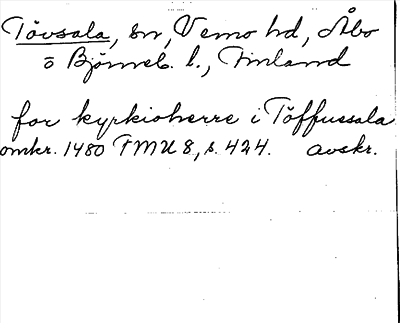 Tövsala, sn, Vemo hd, Åbo
o Björneb. l., Finland
for kyrkioherre i Töffussala
omkr. 1480 FMU 8, s. 424. avskr.